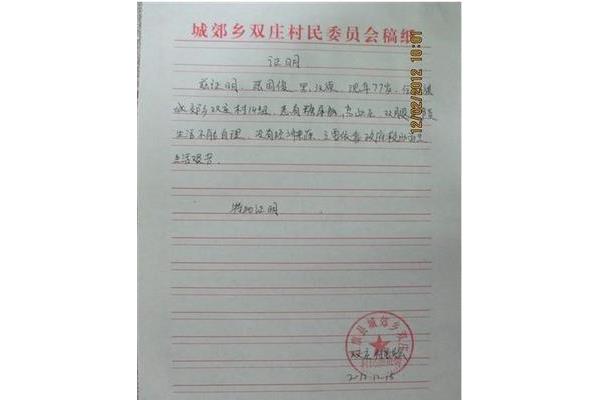 城郊乡双庄村民委员会稿纸
证明
兹证明,张国俊,男,汉族,现年77岁,住
城郊乡双庄村14组,患有糖尿病,高血压,双腿
生活不能自理,没有经济来源,主要依靠政府
生活艰苦.
特此证明
县城郊乡双庄
双庄村委会
2012.12.15
12/02/2012 16:01